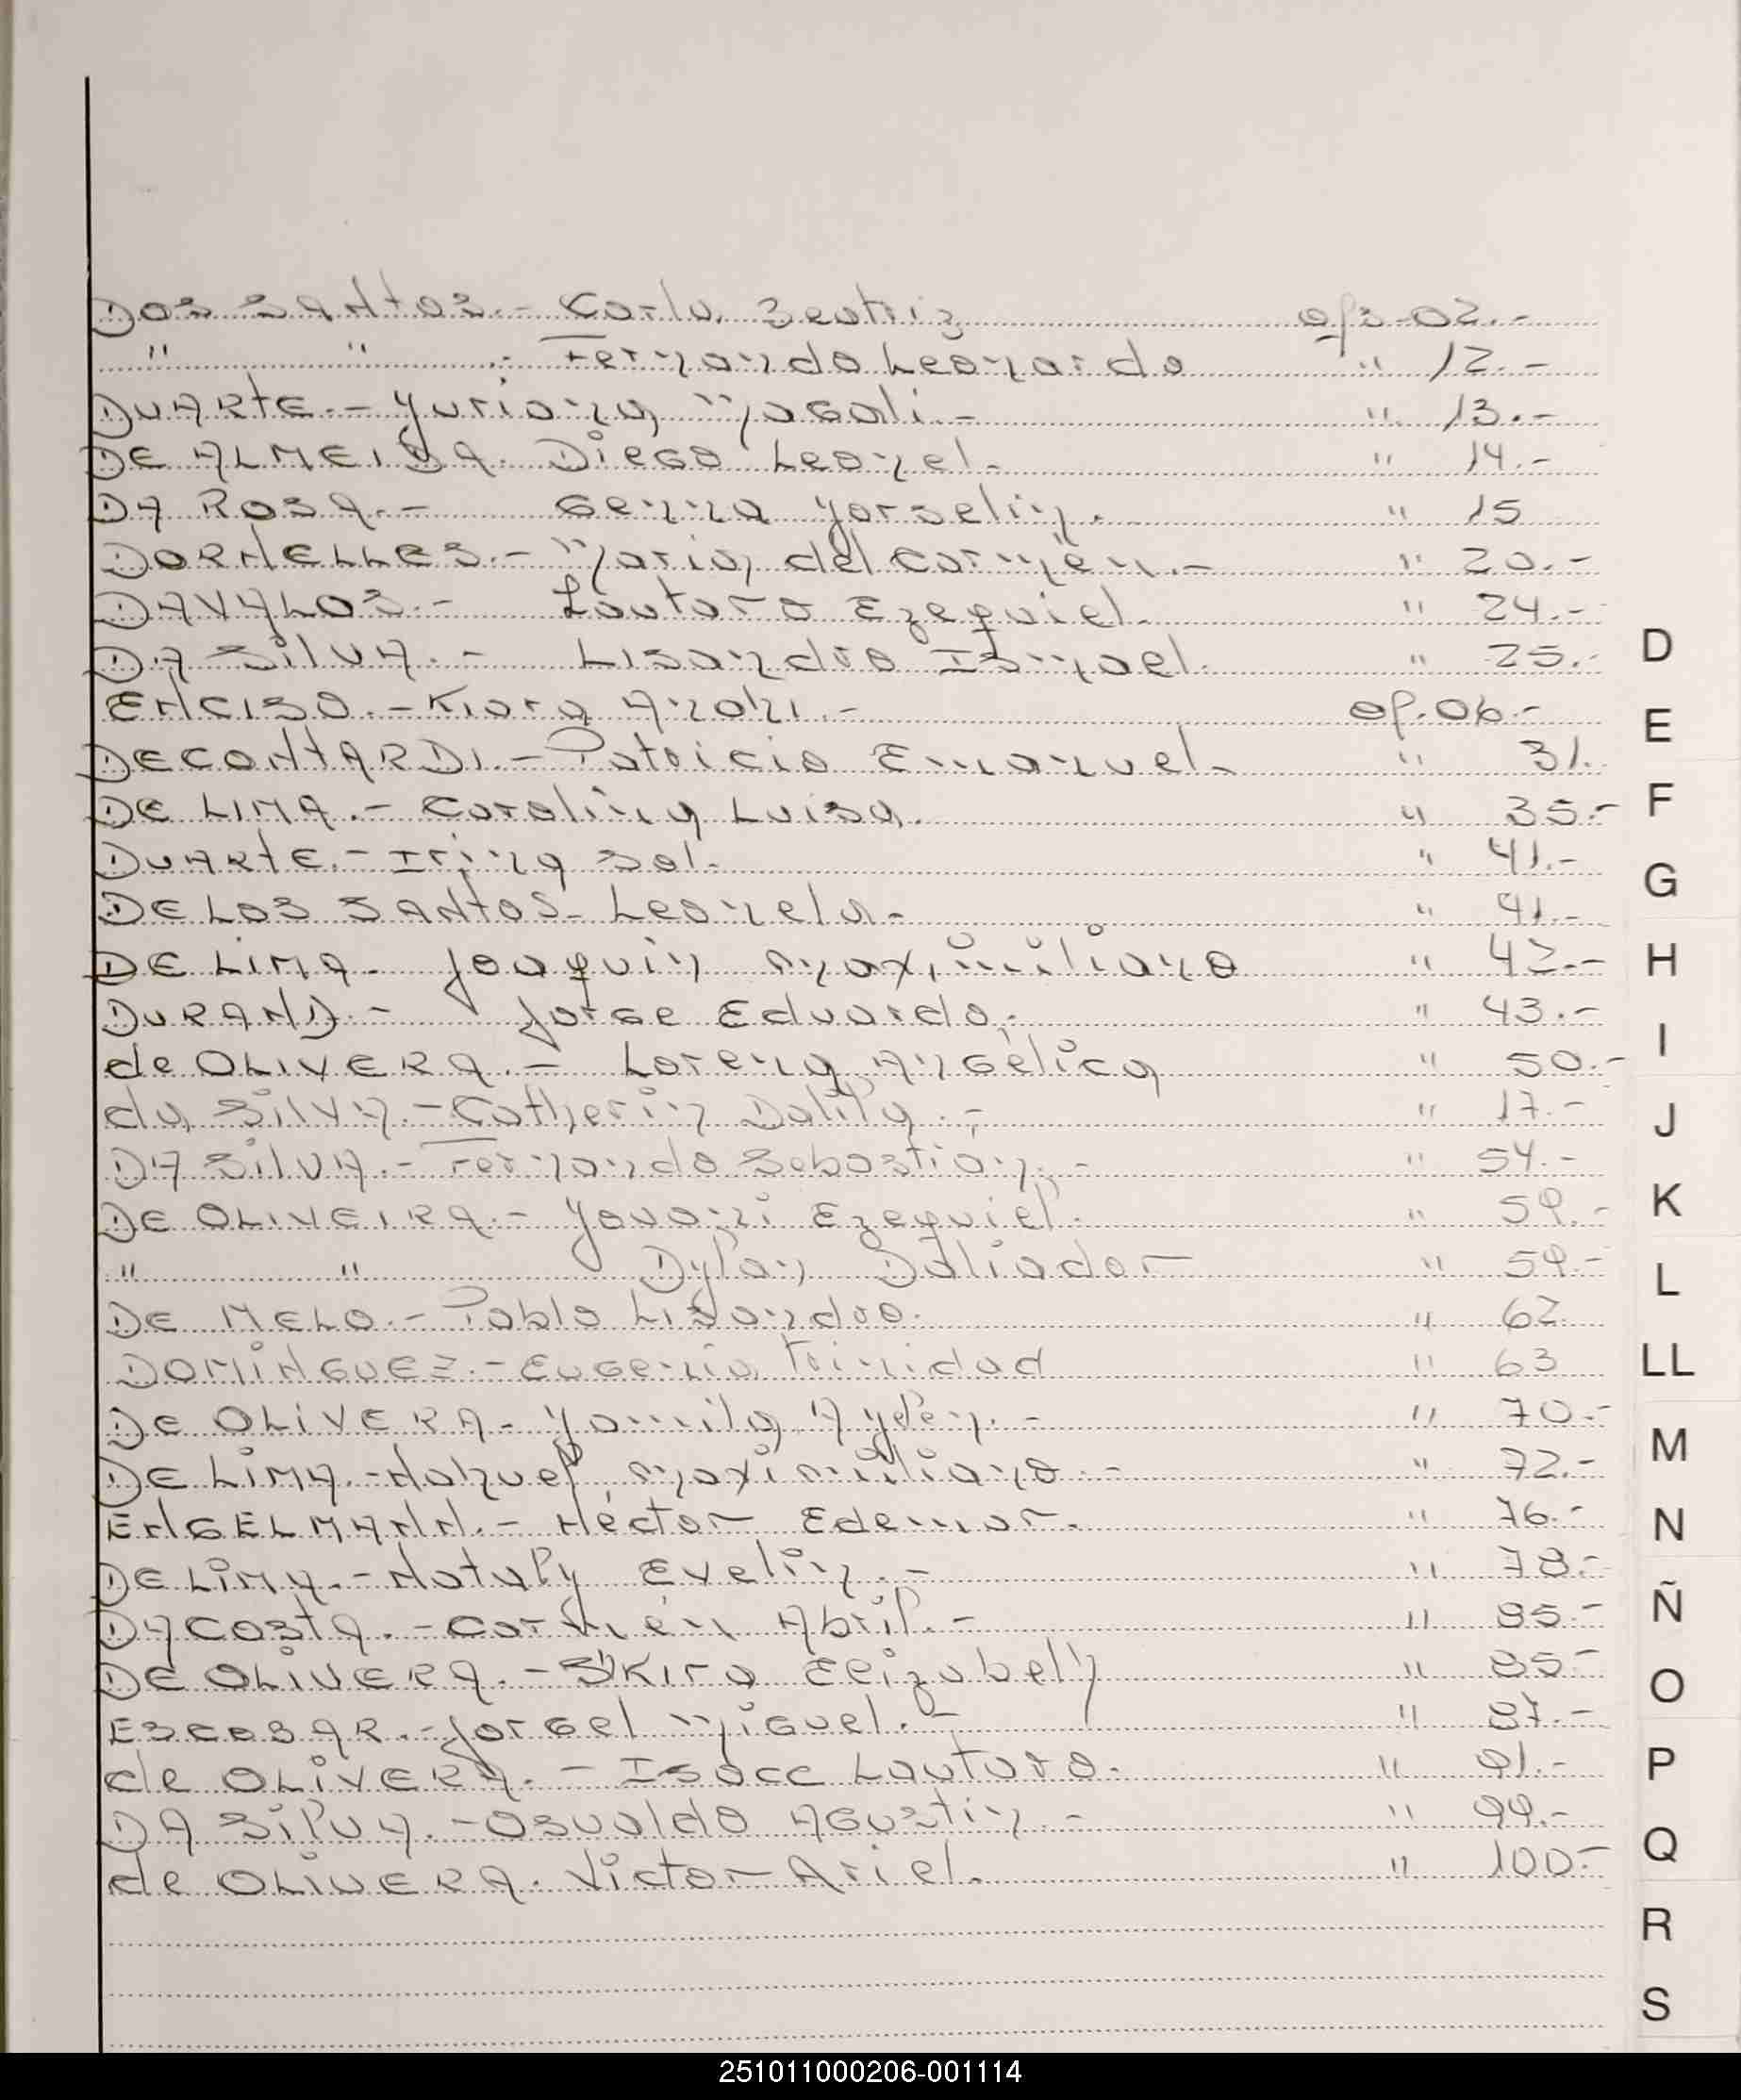 DOS SANTOS.- Carla Beatriz ap3-02.-
" " .- Fernando Leonardo " 12.-
DUARTE.- Yuriana Magali.- " 13.-
DE ALMEIDA. Diego Leonel.- " 14.-
DA ROSA.- Genna Yorselin. " 15
DORNELLES.- Maria del Carmen.- " 20.-
DAVALOS.- Lautaro Ezequiel. " 24.-
DA SILVA.- Lisandro Ismael. " 25.-
ENCISO.- Kiara Anahi.- ap.06.-
DECONTARDI.- Patricio Emanuel.- " 31.
DE LIMA.- Carolina Luisa. " 35.-
DUARTE.- Irina Sol. " 41.-
DE LOS SANTOS- Leonela.- " 41.-
DE LIMA. Joaquin Maximiliano " 42.-
DURAND.- Jorge Eduardo.- " 43.-
de OLIVERA.- Lorena Angélica " 50.-
da SILVA.- Catherin Dalila.- " 17.-
DA SILVA.- Fernando Sebastián.- " 54.-
DE OLIVEIRA.- Yovani Ezequiel. " 59.-
" " Dylan Daliador " 59.-
DE MELO.- Pablo Lisandro. " 62.
DOMINGUEZ.- Eugenia Trinidad " 63
De OLIVERA.- Yamila Aylen.- " 70.-
DE LIMA.- Nahuel Maximiliano.- " 72.-
ENGELMANN.- Héctor Edemar. " 76.-
DE LIMA.- Nataly Evelin.- " 78.-
DA COSTA.- Carmen Abril.- " 85.-
DE OLIVERA.- Elizabeth " 85-
ESCOBAR.- Jorgel Miguel.- " 87.-
de OLIVERA.- Isacc Lautaro. " 91.-
DA SILVA.- Osvaldo Agustin.- " 99.-
de OLIVERA. Victor Ariel. " 100.-
D
E
F
G
H
I
J
K
L
LL
M
N
Ñ
O
P
Q
R
S
251011000206-001114